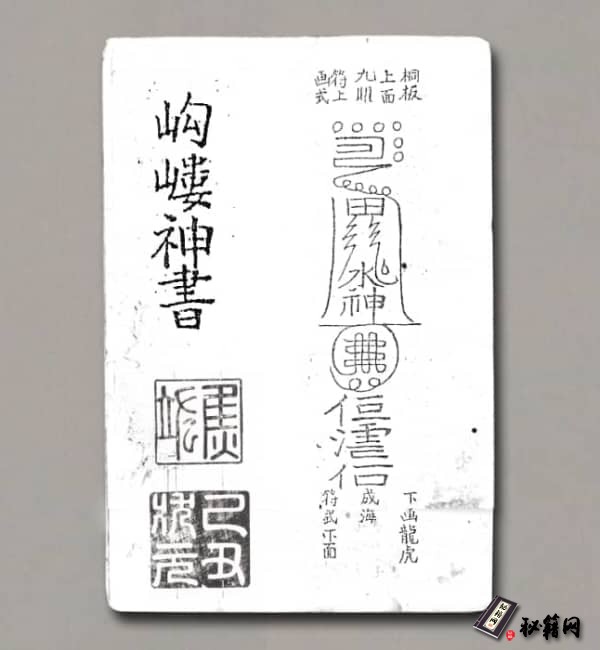 桐板
上面
九川
符上
画式
水神
下画龍虎
成海
符式下面
岣嶁神書
焦竑
己丑
狀元
秘籍网